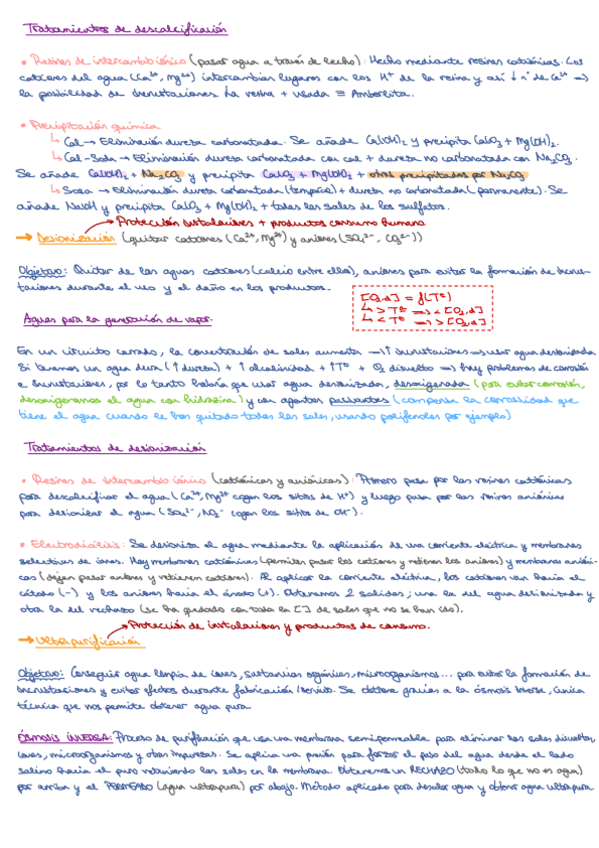 Tratamientos de descalcificación
• Resinas de intercambio iónico (pasar agua a través de lecho): Hecho mediante resinas catiónicas. Los
cationes del agua (Ca²⁺, Mg²⁺) intercambian lugares con los H⁺ de la resina y así ↓ nº de Ca²⁺ →
la posibilidad de incrustaciones. La resina + usada ≡ Amberlita.
• Precipitación química
↳ Cal → Eliminación dureza carbonatada. Se añade Ca(OH)₂ y precipita CaCO₃ + Mg(OH)₂.
↳ Cal-Soda → Eliminación dureza carbonatada con cal + dureza no carbonatada con Na₂CO₃.
Se añade Ca(OH)₂ + Na₂CO₃ y precipita CaCO₃ + Mg(OH)₂ + otros precipitados por Na₂CO₃
↳ Sosa → Eliminación dureza carbonatada (temporal) + dureza no carbonatada (permanente). Se
añade NaOH y precipita CaCO₃ + Mg(OH)₂ + todas las sales de los sulfatos.
→ Protección instalaciones + productos consumo humano
→ Desionización (quitar cationes (Ca²⁺, Mg²⁺) y aniones (SO₄²⁻, CO₃²⁻))
Objetivo: Quitar de las aguas cationes (calcio entre ellos), aniones para evitar la formación de incrus-
taciones durante el uso y el daño en los productos.
[O₂,d] = f(Tª)
↳ > Tª → < [O₂,d]
↳ < Tª → > [O₂,d]
Aguas para la generación de vapor.
En un circuito cerrado, la concentración de sales aumenta → ↑ incrustaciones → usar agua desionizada
Si tenemos un agua dura (↑ dureza) + ↑ alcalinidad + ↑Tª + O₂ disuelto → hay problemas de corrosión
e incrustaciones, por lo tanto habría que usar agua desionizada, desoxigenada (para evitar corrosión,
desoxigenamos el agua con hidracina) y con agentes pulsantes (compensa la corrosividad que
tiene el agua cuando le has quitado todas las sales, usando polifenoles por ejemplo)
Tratamientos de desionización
• Resinas de intercambio iónico (catiónicas y aniónicas): Primero pasa por las resinas catiónicas
para descalcificar el agua (Ca²⁺, Mg²⁺ cogen los sitios de H⁺) y luego pasa por las resinas aniónicas
para desionizar el agua (SO₄²⁻, NO₃⁻ cogen los sitios de OH⁻).
• Electrodiálisis: Se desioniza el agua mediante la aplicación de una corriente eléctrica y membranas
selectivas de iones. Hay membranas catiónicas (permiten pasar los cationes y retienen los aniones) y membranas anióni-
cas (dejan pasar aniones y retienen cationes). Al aplicar la corriente eléctrica, los cationes van hacia el
cátodo (-) y los aniones hacia el ánodo (+). Obtenemos 2 salidas; una la del agua desionizada y
otra la del rechazo (se ha quedado con toda la [ ] de sales que no se han ido).
→ Protección de instalaciones y productos de consumo.
→ Ultrapurificación
Objetivo: Conseguir agua limpia de iones, sustancias orgánicas, microorganismos... para evitar la formación de
incrustaciones y evitar efectos durante fabricación/servicio. Se obtiene gracias a la ósmosis inversa, única
técnica que nos permite obtener agua pura.
ÓSMOSIS INVERSA: Proceso de purificación que usa una membrana semipermeable para eliminar las sales disueltas,
iones, microorganismos y otras impurezas. Se aplica una presión para forzar el paso del agua desde el lado
salino hacia el puro reteniendo las sales en la membrana. Obtenemos un RECHAZO (todo lo que no es agua)
por arriba y el PERMEADO (agua ultrapura) por abajo. Método aplicado para desalar agua y obtener agua ultrapura.